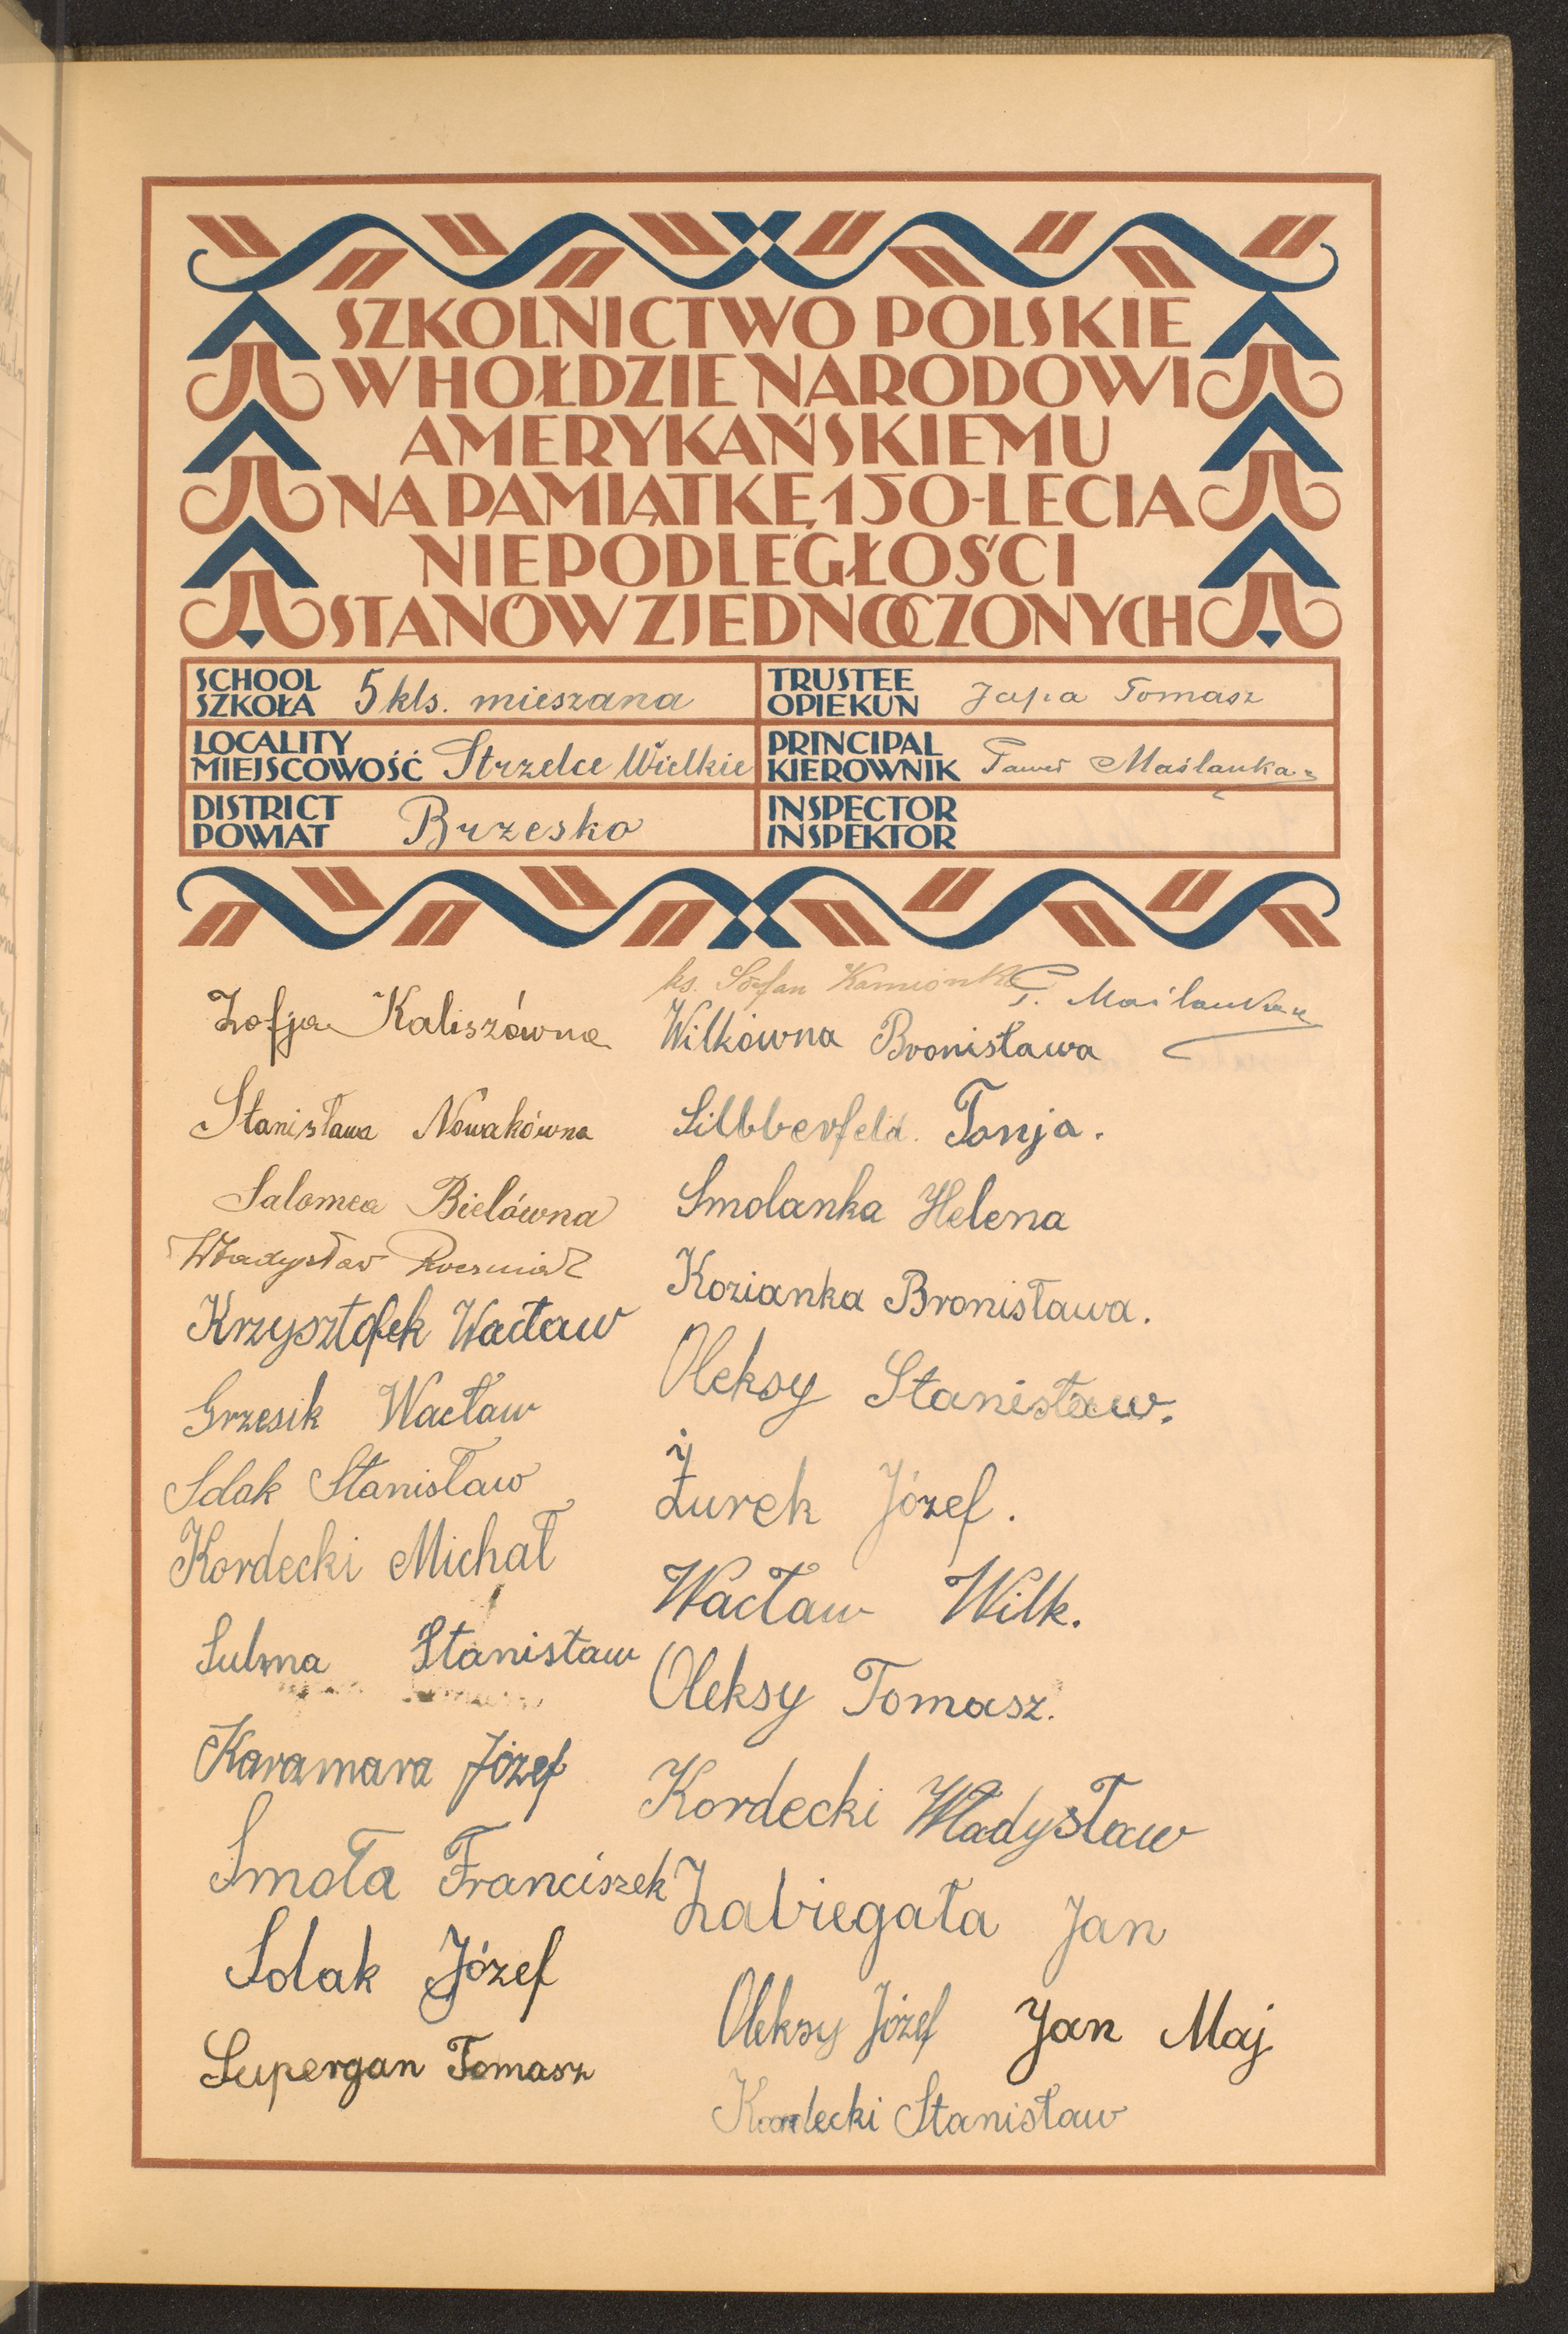 SZKOLNICTWO POLSKIE
W HOŁDZIE NARODOWI
AMERYKAŃSKIEMU
NA PAMIĄTKĘ 150-LECIA
NIEPODLEGŁOŚCI
STANÓW ZJEDNOCZONYCH
SCHOOL
SZKOŁA 5 kls. mieszana
TRUSTEE
OPIEKUN Japa Tomasz
LOCALITY
MIEJSCOWOŚĆ Strzelce Wielkie
PRINCIPAL
KIEROWNIK Paweł Maślanka
DISTRICT
POWIAT Brzesko
INSPECTOR
INSPEKTOR
Zofja Kaliszówna
Stanisława Nowakówna
Salomea Bielówna
Władysław
Krzysztofek Wacław
Grzesik Wacław
Solak Stanisław
Kordecki Michał
Sulma Stanisław
Karamara Józef
Smoła Franciszek
Solak Józef
Supergan Tomasz
ks. Stefan Kamionka
P. Maślanka
Wilkówna Bronisława
Silbberfeld. Tonja.
Smolanka Helena
Kozianka Bronisława.
Oleksy Stanisław.
Żurek Józef.
Wacław Wilk.
Oleksy Tomasz.
Kordecki Władysław
Zabiegała Jan
Oleksy Józef Jan Maj
Kordecki Stanisław